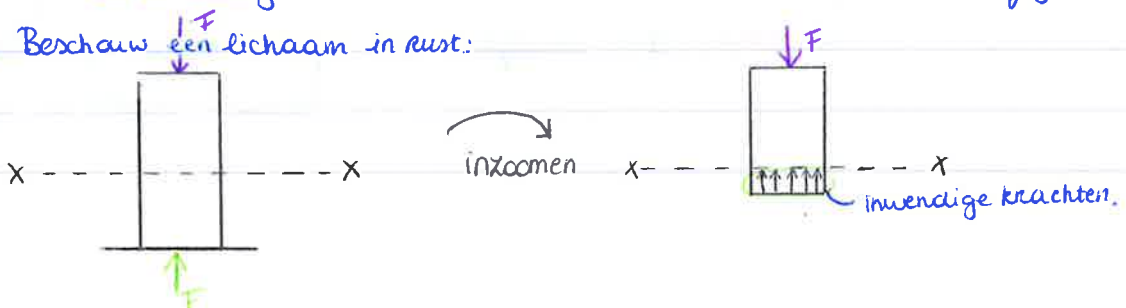 F
Beschouw een lichaam in rust:
F
x x
inzoomen
x x
inwendige krachten.
F